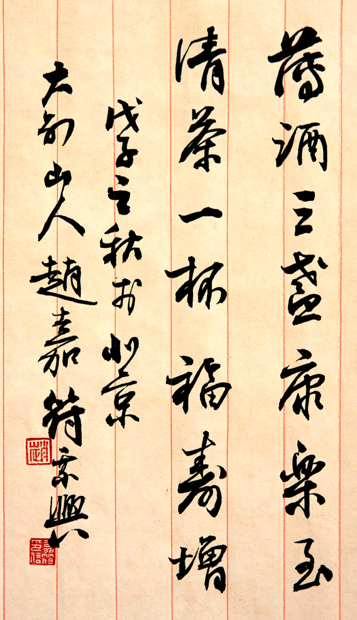 薄酒三盏康乐至
清茶一杯福寿增
戊子之秋于北京
大别山人赵嘉符乘兴